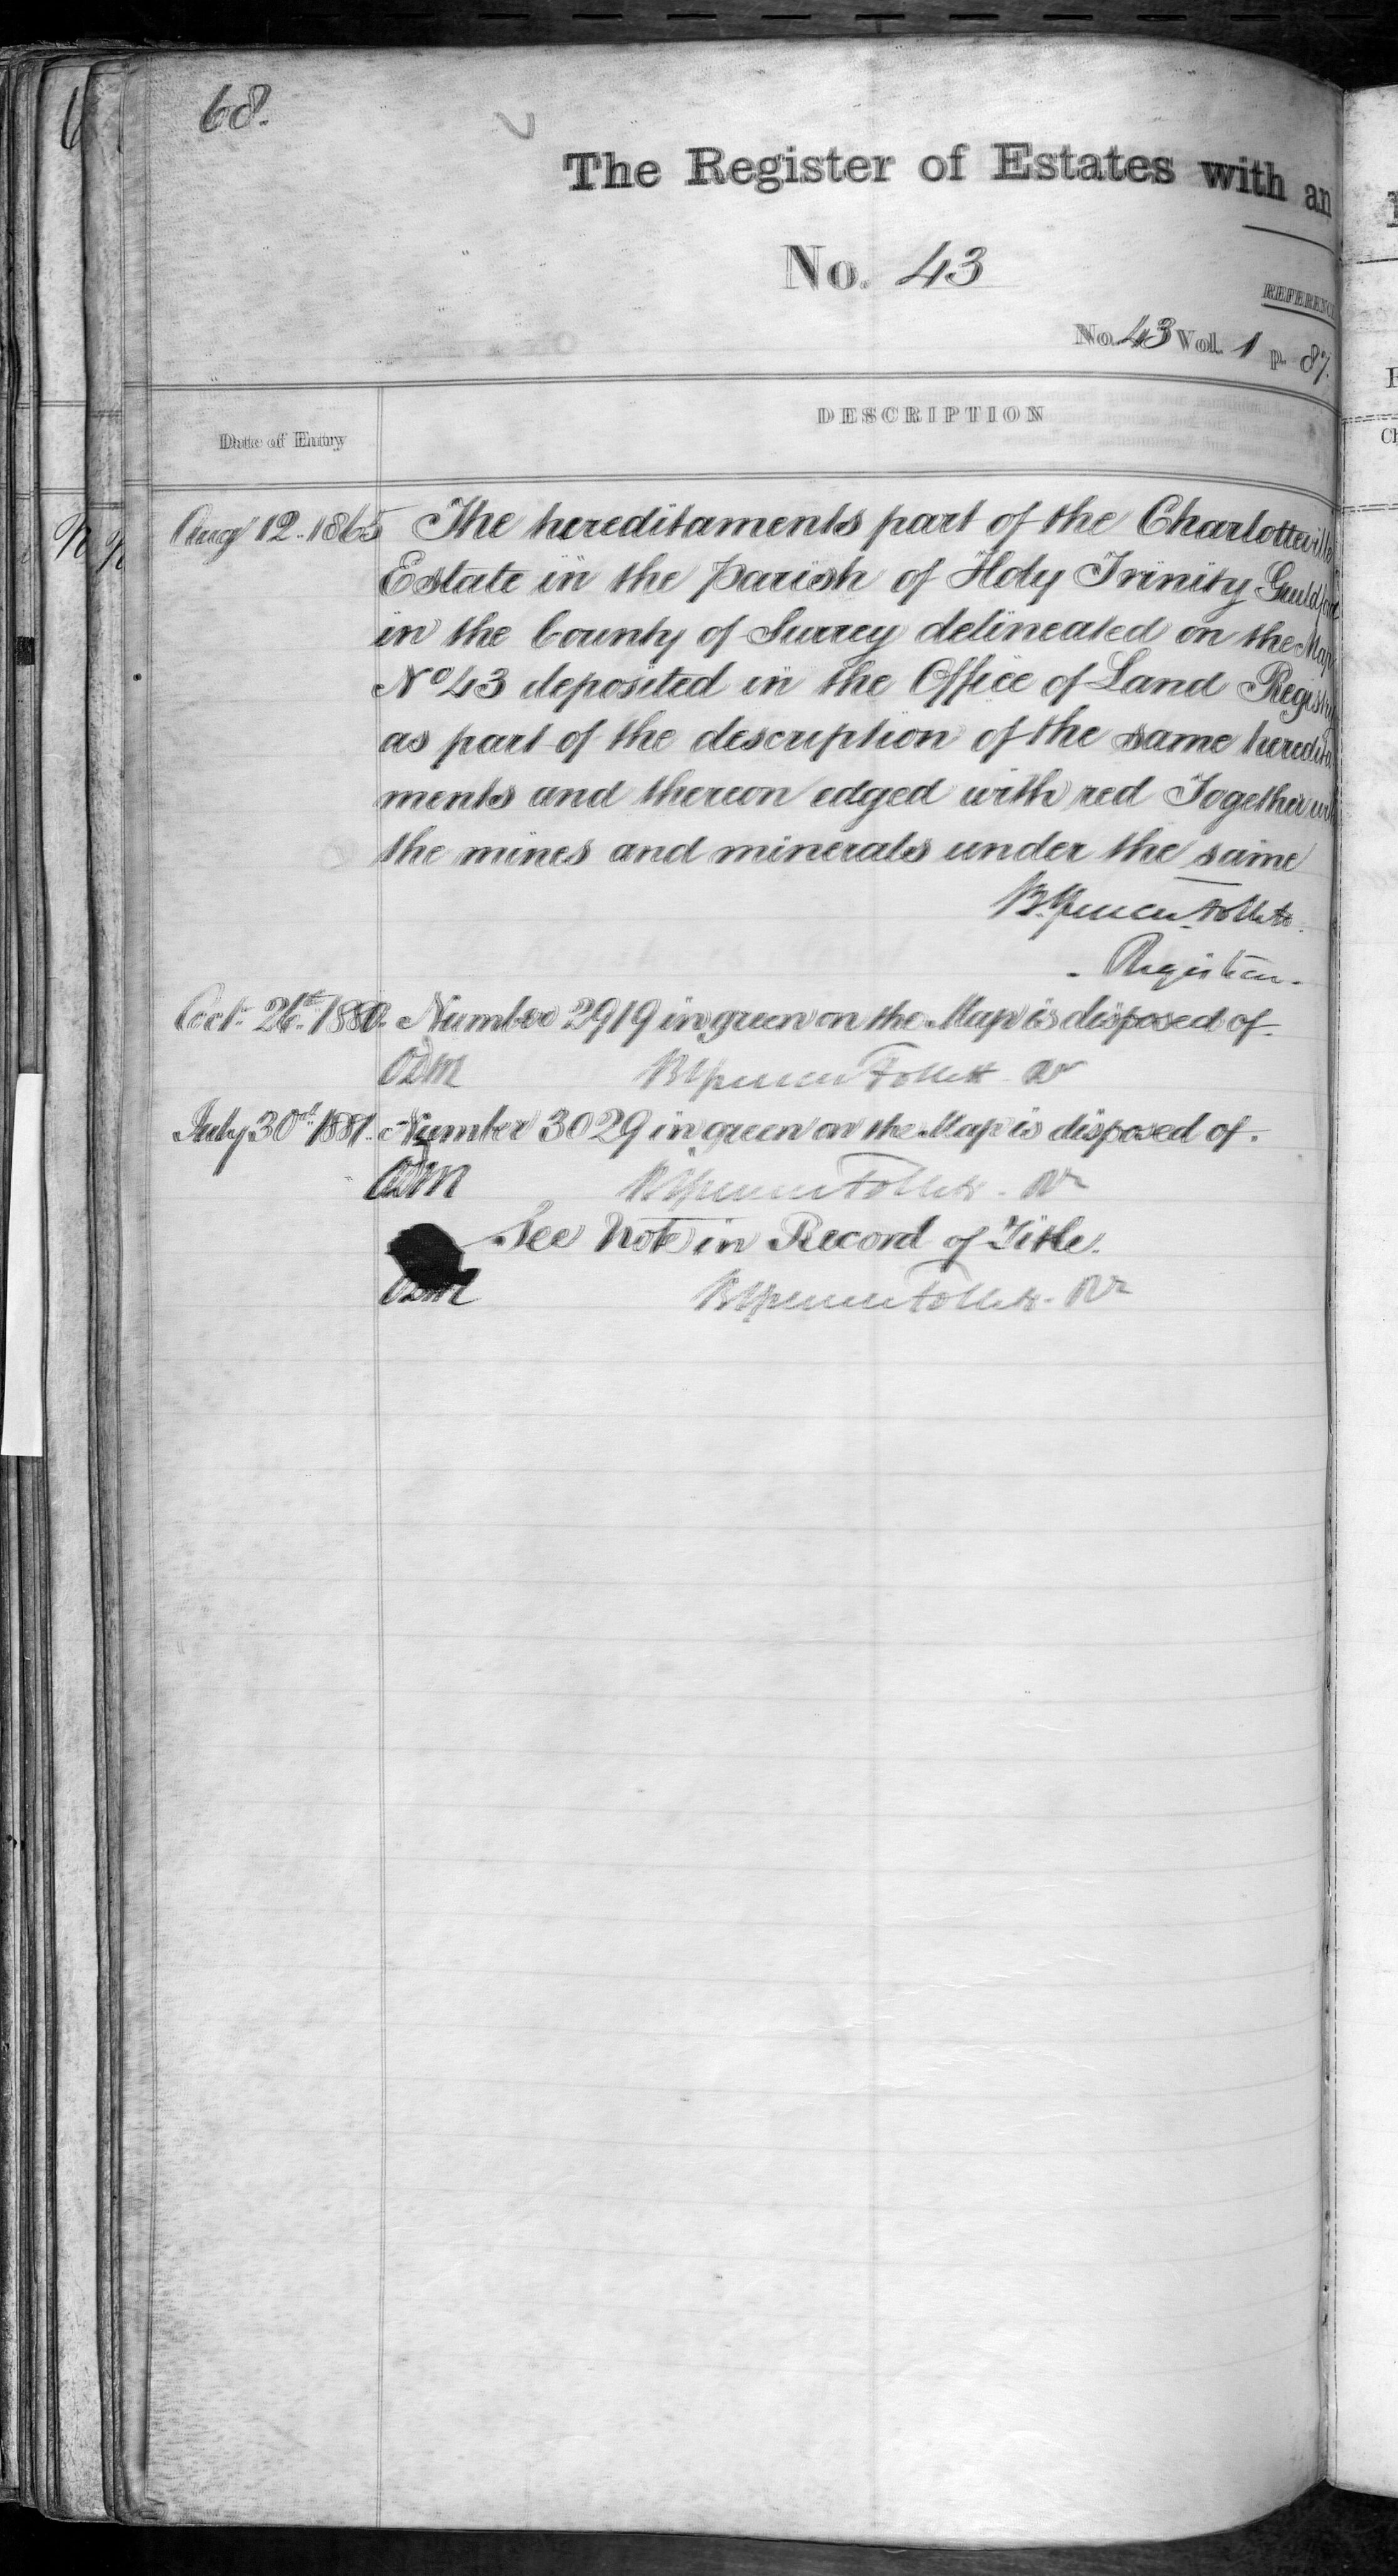 68.
The Register of Estates with an
No. 43
REFERENC
No. 43 Vol. 1 p. 87.
Date of Entry
DESCRIPTION
Aug 12. 1865 The hereditaments part of the Charlotteville
Estate in the Parish of Holy Trinity Guildford
in the County of Surrey delineated on the Map
No 43 deposited in the Office of Land Registry
as part of the description of the same heredita
ments and thereon edged with red Together with
the mines and minerals under the same
B. Spencer Follett
Registrar.
Oct. 26th 1880. Number 2919 in green on the Map is disposed of.
B Spencer Follett
July 30th 1881. Number 3029 in green on the Map is disposed of.
B Spencer Follett
See Note in Record of Title.
B Spencer Follett